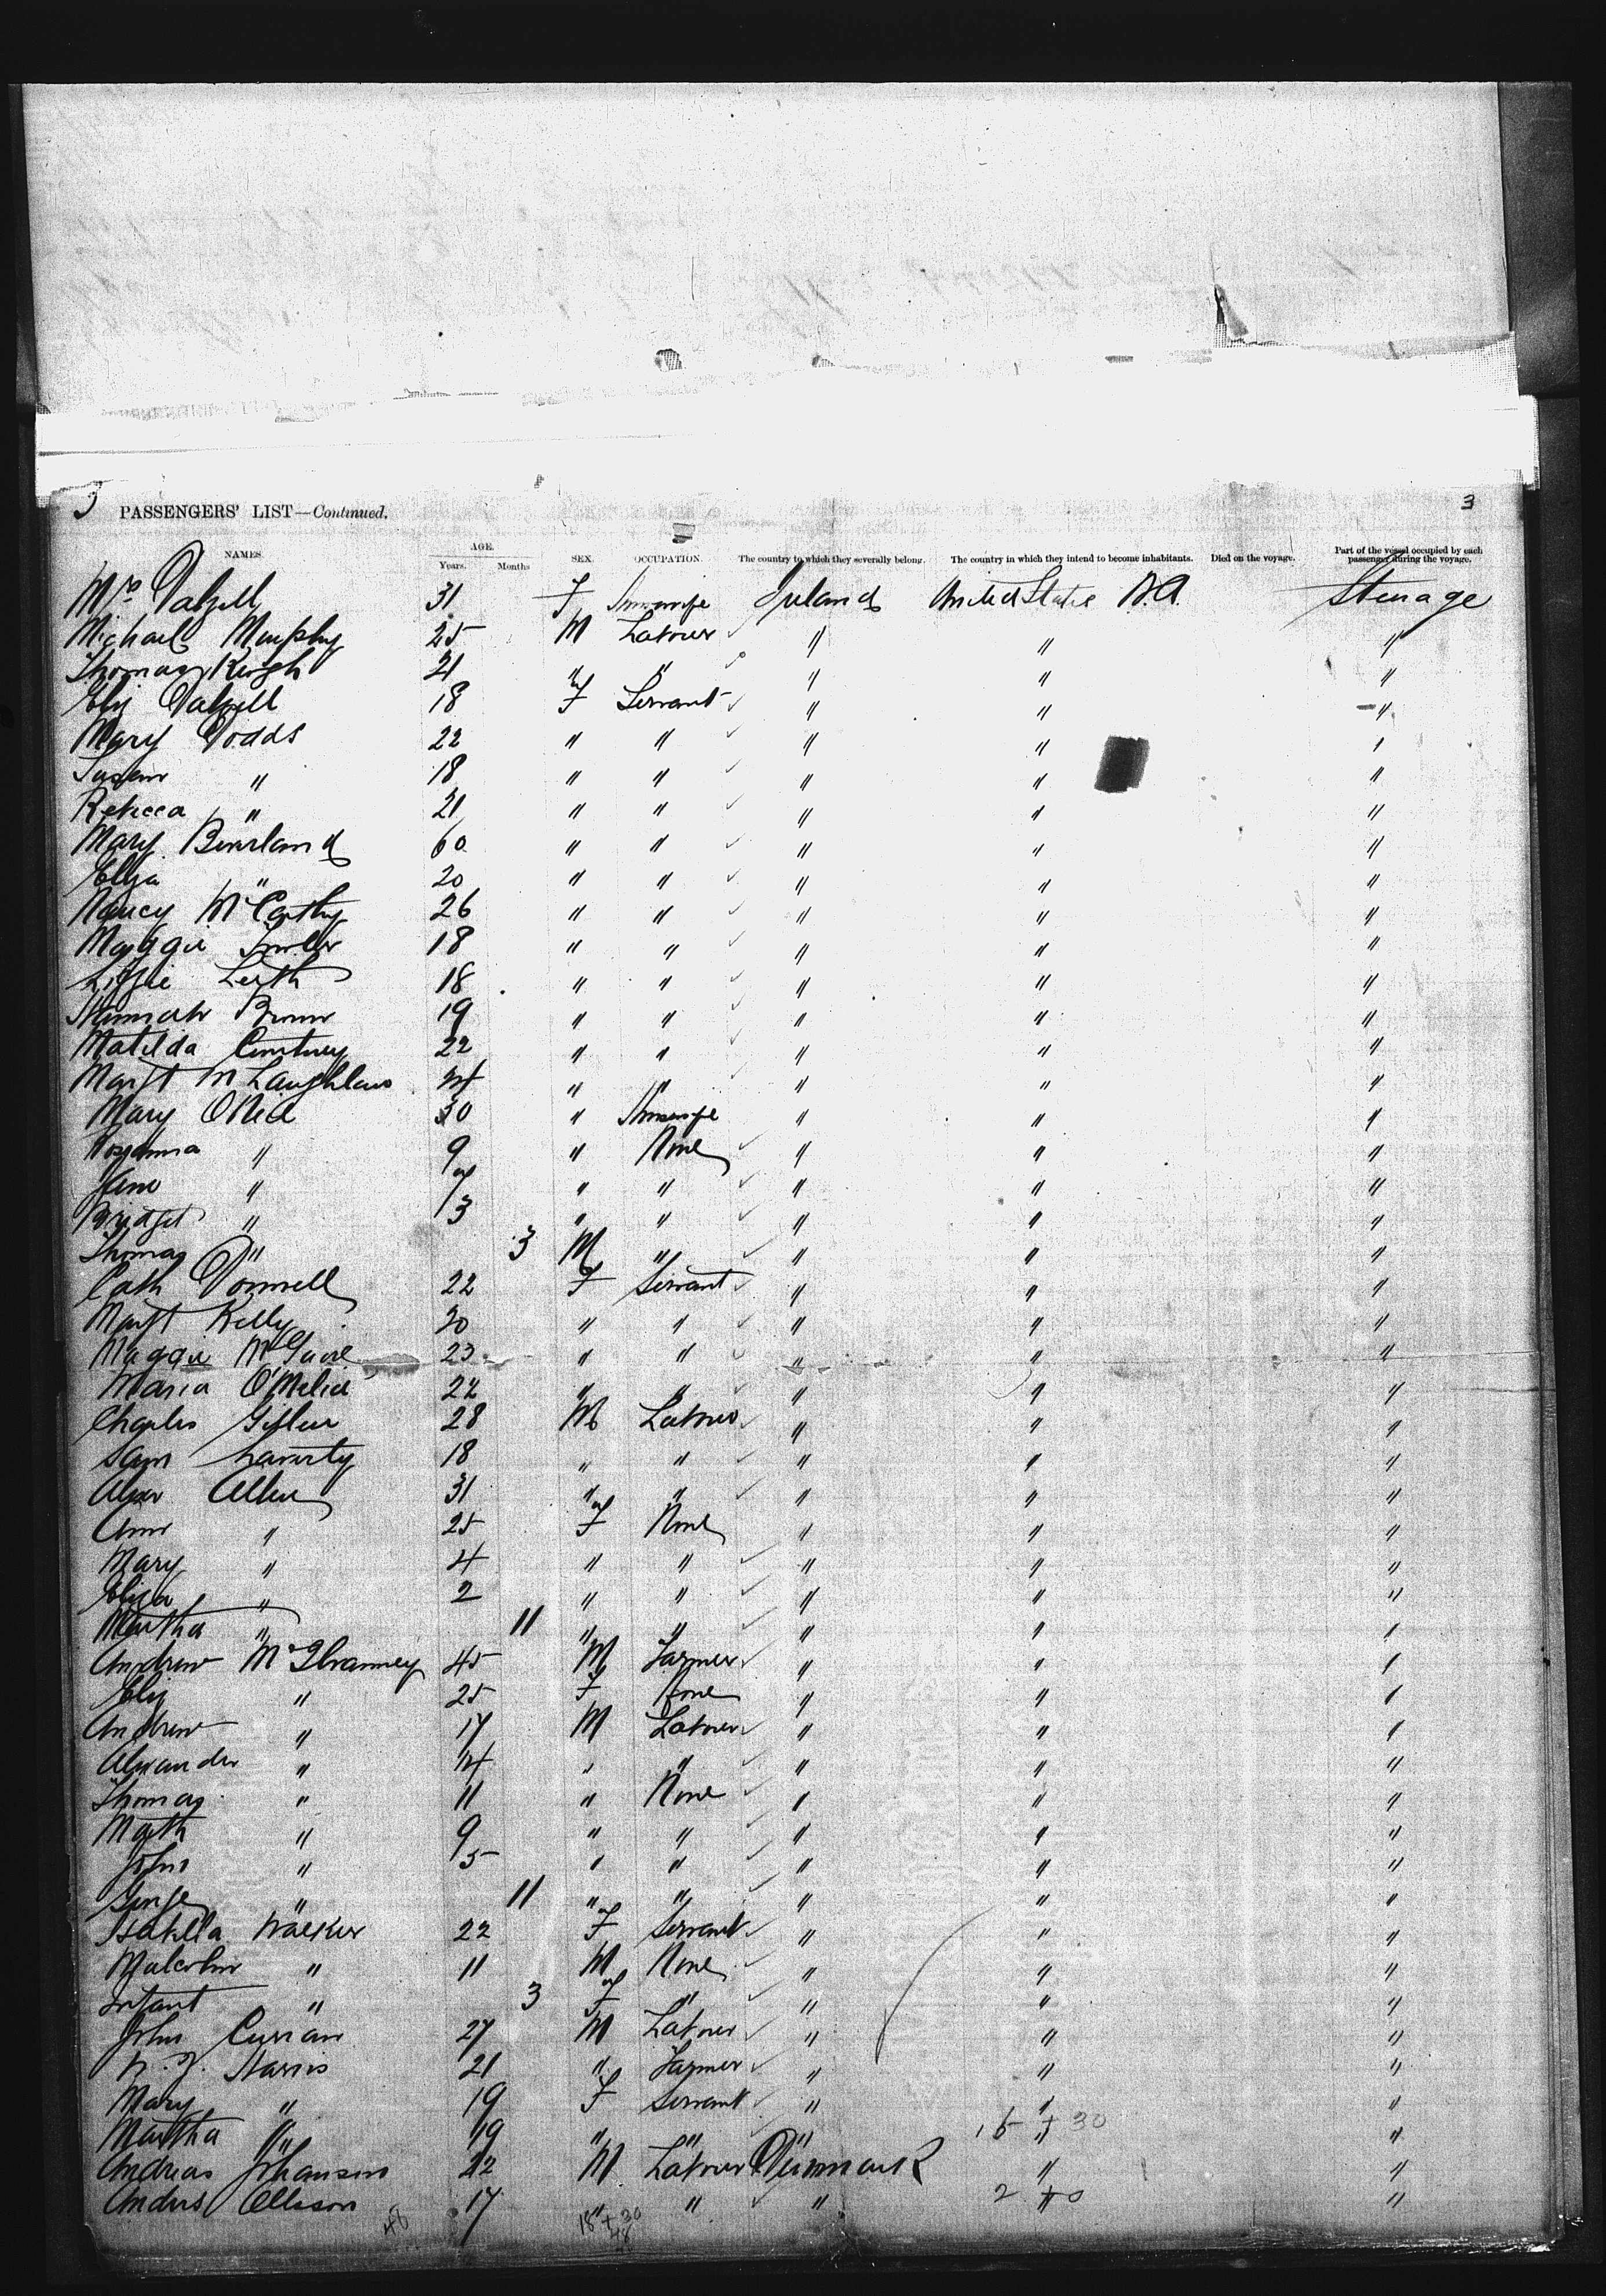 3 PASSENGERS' LIST—Continued. 3
NAMES. AGE. Years. Months SEX. OCCUPATION. The country to which they severally belong. The country in which they intend to become inhabitants. Died on the voyage. Part of the vessel occupied by each passenger during the voyage.
Mrs Dalzell 31 F Ireland United States N.A. Steerage
Michael Murphy 25 M Labourer " " "
Thomas Keogh 21 " " " " "
Eliz Dalzell 18 F Servant " " "
Mary Dodds 22 " " " " "
Susan " 18 " " " " "
Rebecca " 21 " " " " "
Mary 60 " " " " "
Eliza " 20 " " " " "
Nancy McCarthy 26 " " " " "
Maggie 18 " " " " "
Lizzie Leith 18 " " " " "
Hannah Brown 19 " " " " "
Matilda Courtney 22 " " " " "
Margt McLaughlan 24 " " " " "
Mary ONeil 30 " " " "
Rosanna " 9 " None " " "
Jane " 7 " " " " "
Bridget " 3 " " " " "
Thomas " 3 M " " " "
Cath Donnell 22 F Servant " " "
Margt Kelly 20 " " " " "
Maggie 23 " " " " "
Maria 22 " " " " "
Charles 28 M Labour " " "
Sam Laverty 18 " " " " "
Alexr Allen 31 " " " " "
Ann " 25 F None " " "
Mary " 4 " " " " "
Eliza " 2 " " " " "
Martha " 11 " " " " "
Andrew 45 M Farmer " " "
Eliz " 25 F None " " "
Andrew " 17 M Labourer " " "
Alexander " 14 " " " " "
Thomas " 11 " None " " "
" 9 " " " " "
John " 5 " " " " "
George " 11 " " " " "
Isabella Walker 22 F Servant " " "
Malcolm " 11 M None " " "
Infant " 3 F " " " "
John Curran 27 M Labourer " " "
Harris 21 " Farmer " " "
Mary " 19 F Servant " " "
Martha " 19 " " " " "
Andreas Johansen 22 M Labourer Denmark " "
Anders Ollsson 17 " " " "
48 18 + 30
48